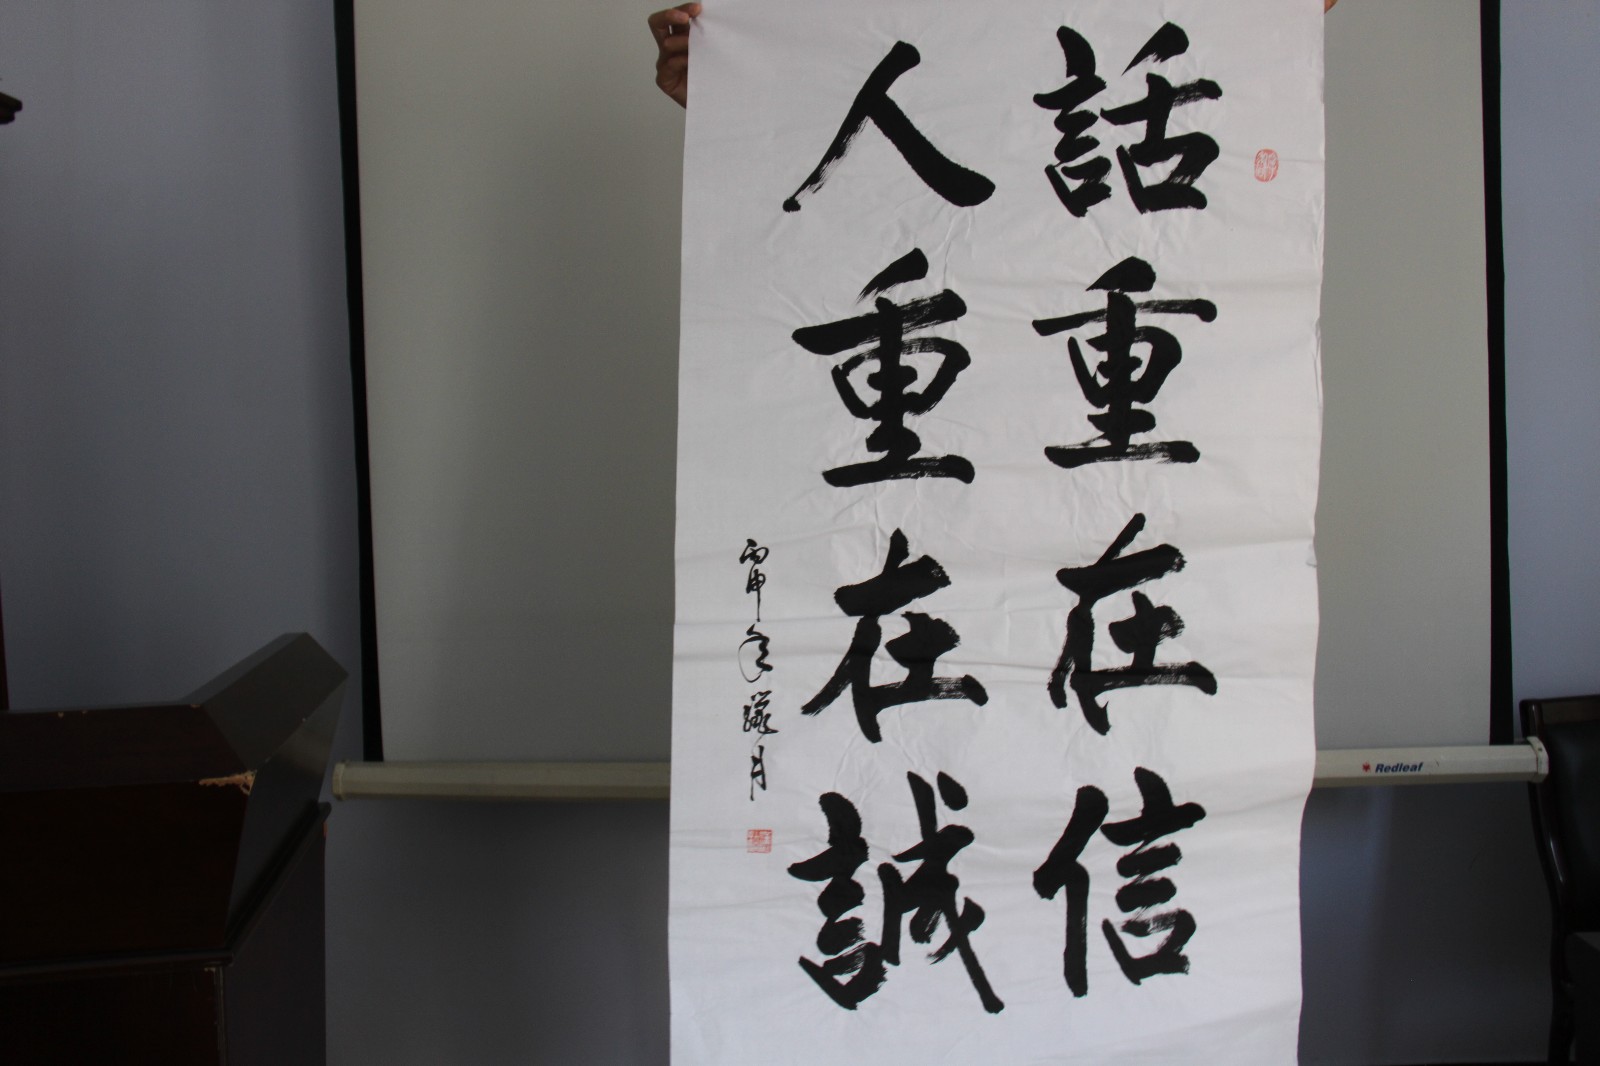 話重在信
人重在誠
丙申年臘月
Redleaf